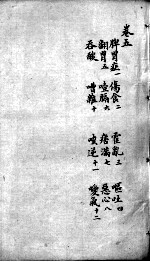 卷五
脾胃症一 傷食二 霍亂三 嘔吐四
翻胃五 噎膈六 痞滿七 惡心八
吞酸 嘈雜十 逆十一 噯氣十二